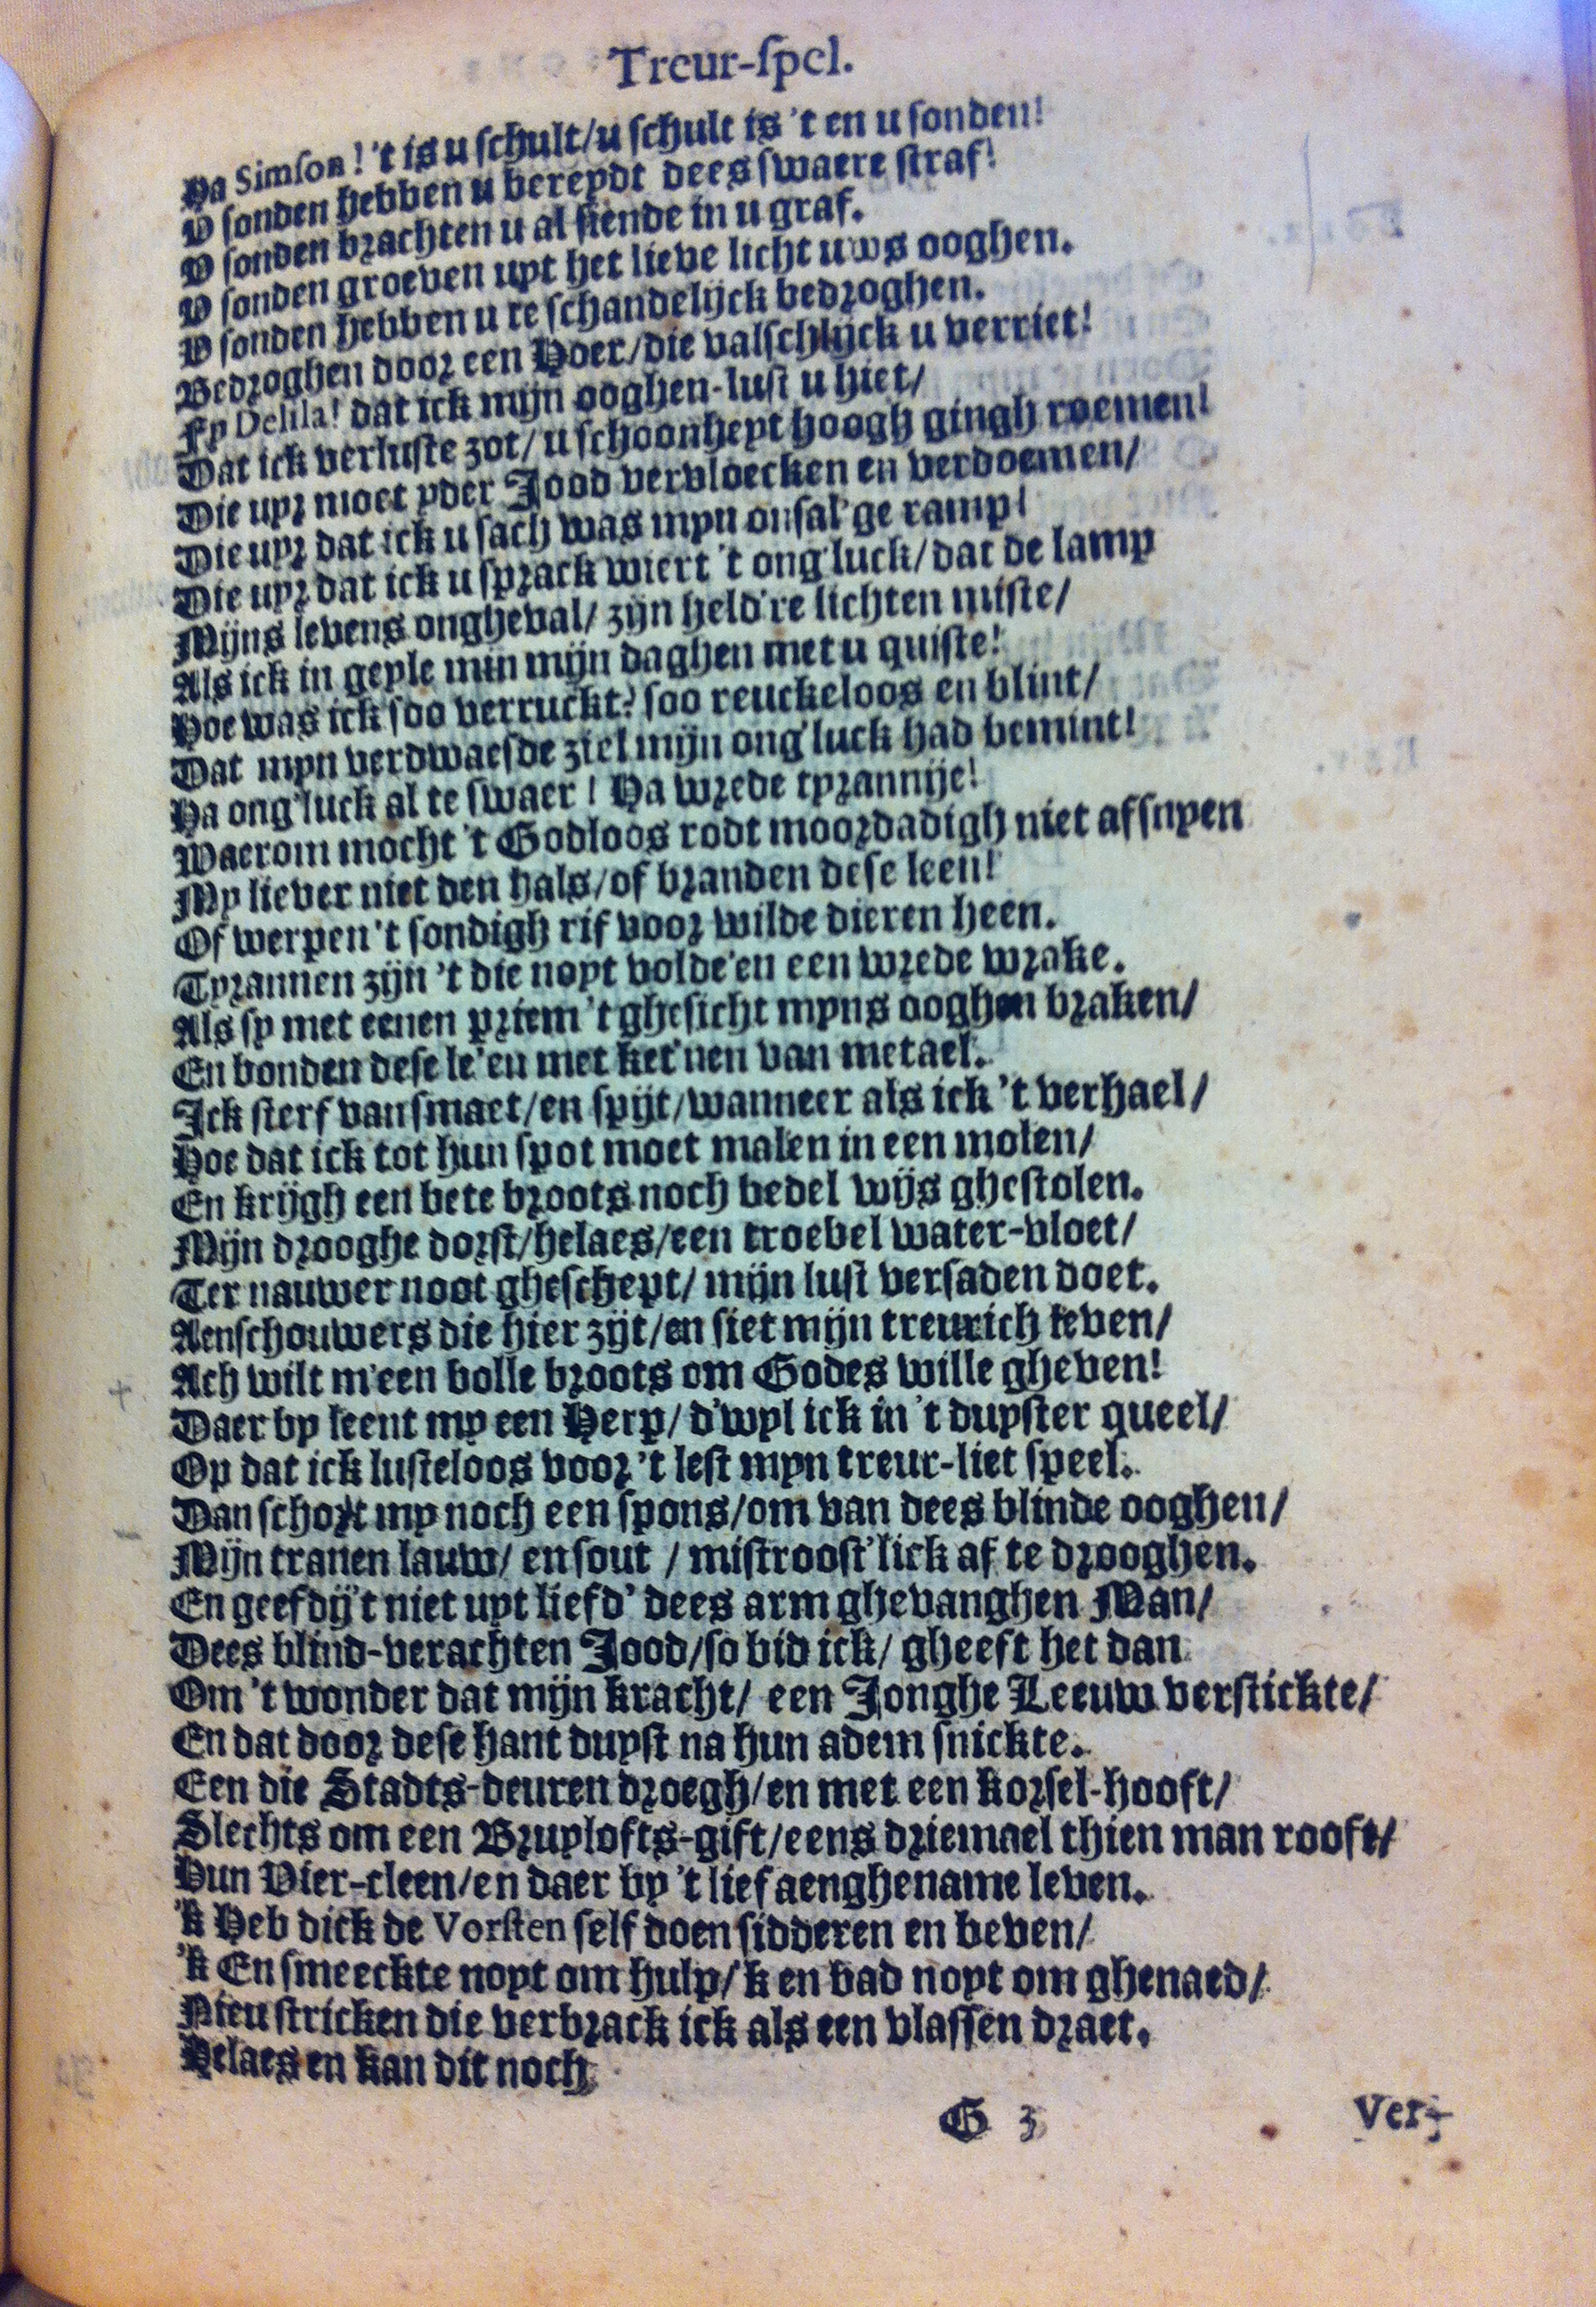 Treur-ſpel.
Ha Simſon! 't is u ſchult/u ſchult is 't en u ſonden!
V ſonden hebben u bereydt dees ſwaere ſtraf!
V ſonden brachten u al ſiende in u graf.
V ſonden groeven uyt het lieve licht uws ooghen.
V ſonden hebben u te ſchandelijck bedroghen.
Bedroghen door een Hoer/die valſchlijck u verriet!
Fy Delila! dat ick mijn ooghen-luſt u hiet/
Dat ick verluſte zot/ u ſchoonheyt hoogh gingh roemen!
Die uyr moet yder Jood vervloecken en verdoemen/
Die uyr dat ick u ſach was myn onſal'ge ramp!
Die uyr dat ick u ſprack wiert 't ong'luck/dat de lamp
Mijns levens ongheval/ zijn held're lichten miſte/
Als ick in geyle min mijn daghen met u quiſte!
Hoe was ick ſoo verruckt? ſoo reuckeloos en blint/
Dat myn verdwaeſde ziel mijn ong'luck had bemint!
Ha ong'luck al te ſwaer! Ha wrede tyrannije!
Waerom mocht 't Godloos rodt moordadigh niet afſnyen
My liever niet den hals/of branden deſe leen!
Of werpen 't ſondigh rif voor wilde dieren heen.
Tyrannen zijn 't die noyt volde'en een wrede wrake.
Als ſy met eenen priem 't gheſicht myns ooghen braken/
En bonden deſe le'en met ket'nen van metael.
Ick ſterf van ſmaet/en ſpijt/wanneer als ick 't verhael/
Hoe dat ick tot hun ſpot moet malen in een molen/
En krijgh een bete broots noch bedel wijs gheſtolen.
Mijn drooghe dorſt/helaes/een troebel water-vloet/
Ter nauwer noot gheſchept/ mijn luſt verſaden doet.
Aenſchouwers die hier zijt/en ſiet mijn treurich leven/
Ach wilt m'een bolle broots om Godes wille gheven!
Daer by leent my een Herp/ d'wyl ick in 't duyſter queel/
Op dat ick luſteloos voor 't leſt myn treur-liet ſpeel.
Dan ſchort my noch een ſpons/om van dees blinde ooghen/
Mijn tranen lauw/ en ſout / miſtrooſt'lick af te drooghen.
En geefdij't niet uyt liefd' dees arm ghevanghen Man/
Dees blind-verachten Jood/ſo bid ick/ gheeft het dan
Om 't wonder dat mijn kracht/ een Jonghe Leeuw verſtickte/
En dat door deſe hant duyſt na hun adem ſnickte.
Een die Stadts-deuren droegh/en met een korſel-hooft/
Slechts om een Bruylofts-gift/eens driemael thien man rooft/
Hun Vier-cleen/en daer by 't lief aenghename leven.
'k Heb dick de Vorſten ſelf doen ſidderen en beven/
'k En ſmeeckte noyt om hulp/'k en bad noyt om ghenaed/
Nieu ſtricken die verbrack ick als een vlaſſen draet.
Helaes en kan dit noch
G 3
Ver-